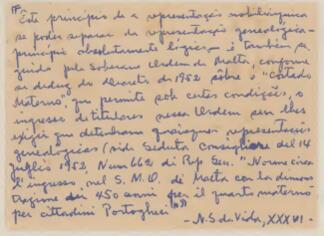 Este princípio de a representação nobiliárquica
se poder separar da representação genealógica -
princípio absolutamente lógico - é também se-
guido pela Soberana Ordem de Malta, conforme
se deduz do Decreto de 1952 sôbre o "Costado
Materno", que permite sob certas condições, o
ingresso de titulares nessa Ordem sem lhes
exigir que detenham quaisquer representações
genealógicas (vide Seduta Consigliare del 14
Juglio 1952, Num 662 di Rep. Gen. "Norme circa
l'ingresso, nel S.M.O. di Malta con la dimos
trazione dei 450 anni per il quarto materno
per cittadini Portoghesi")
- N.S da Vida, XXXVI -